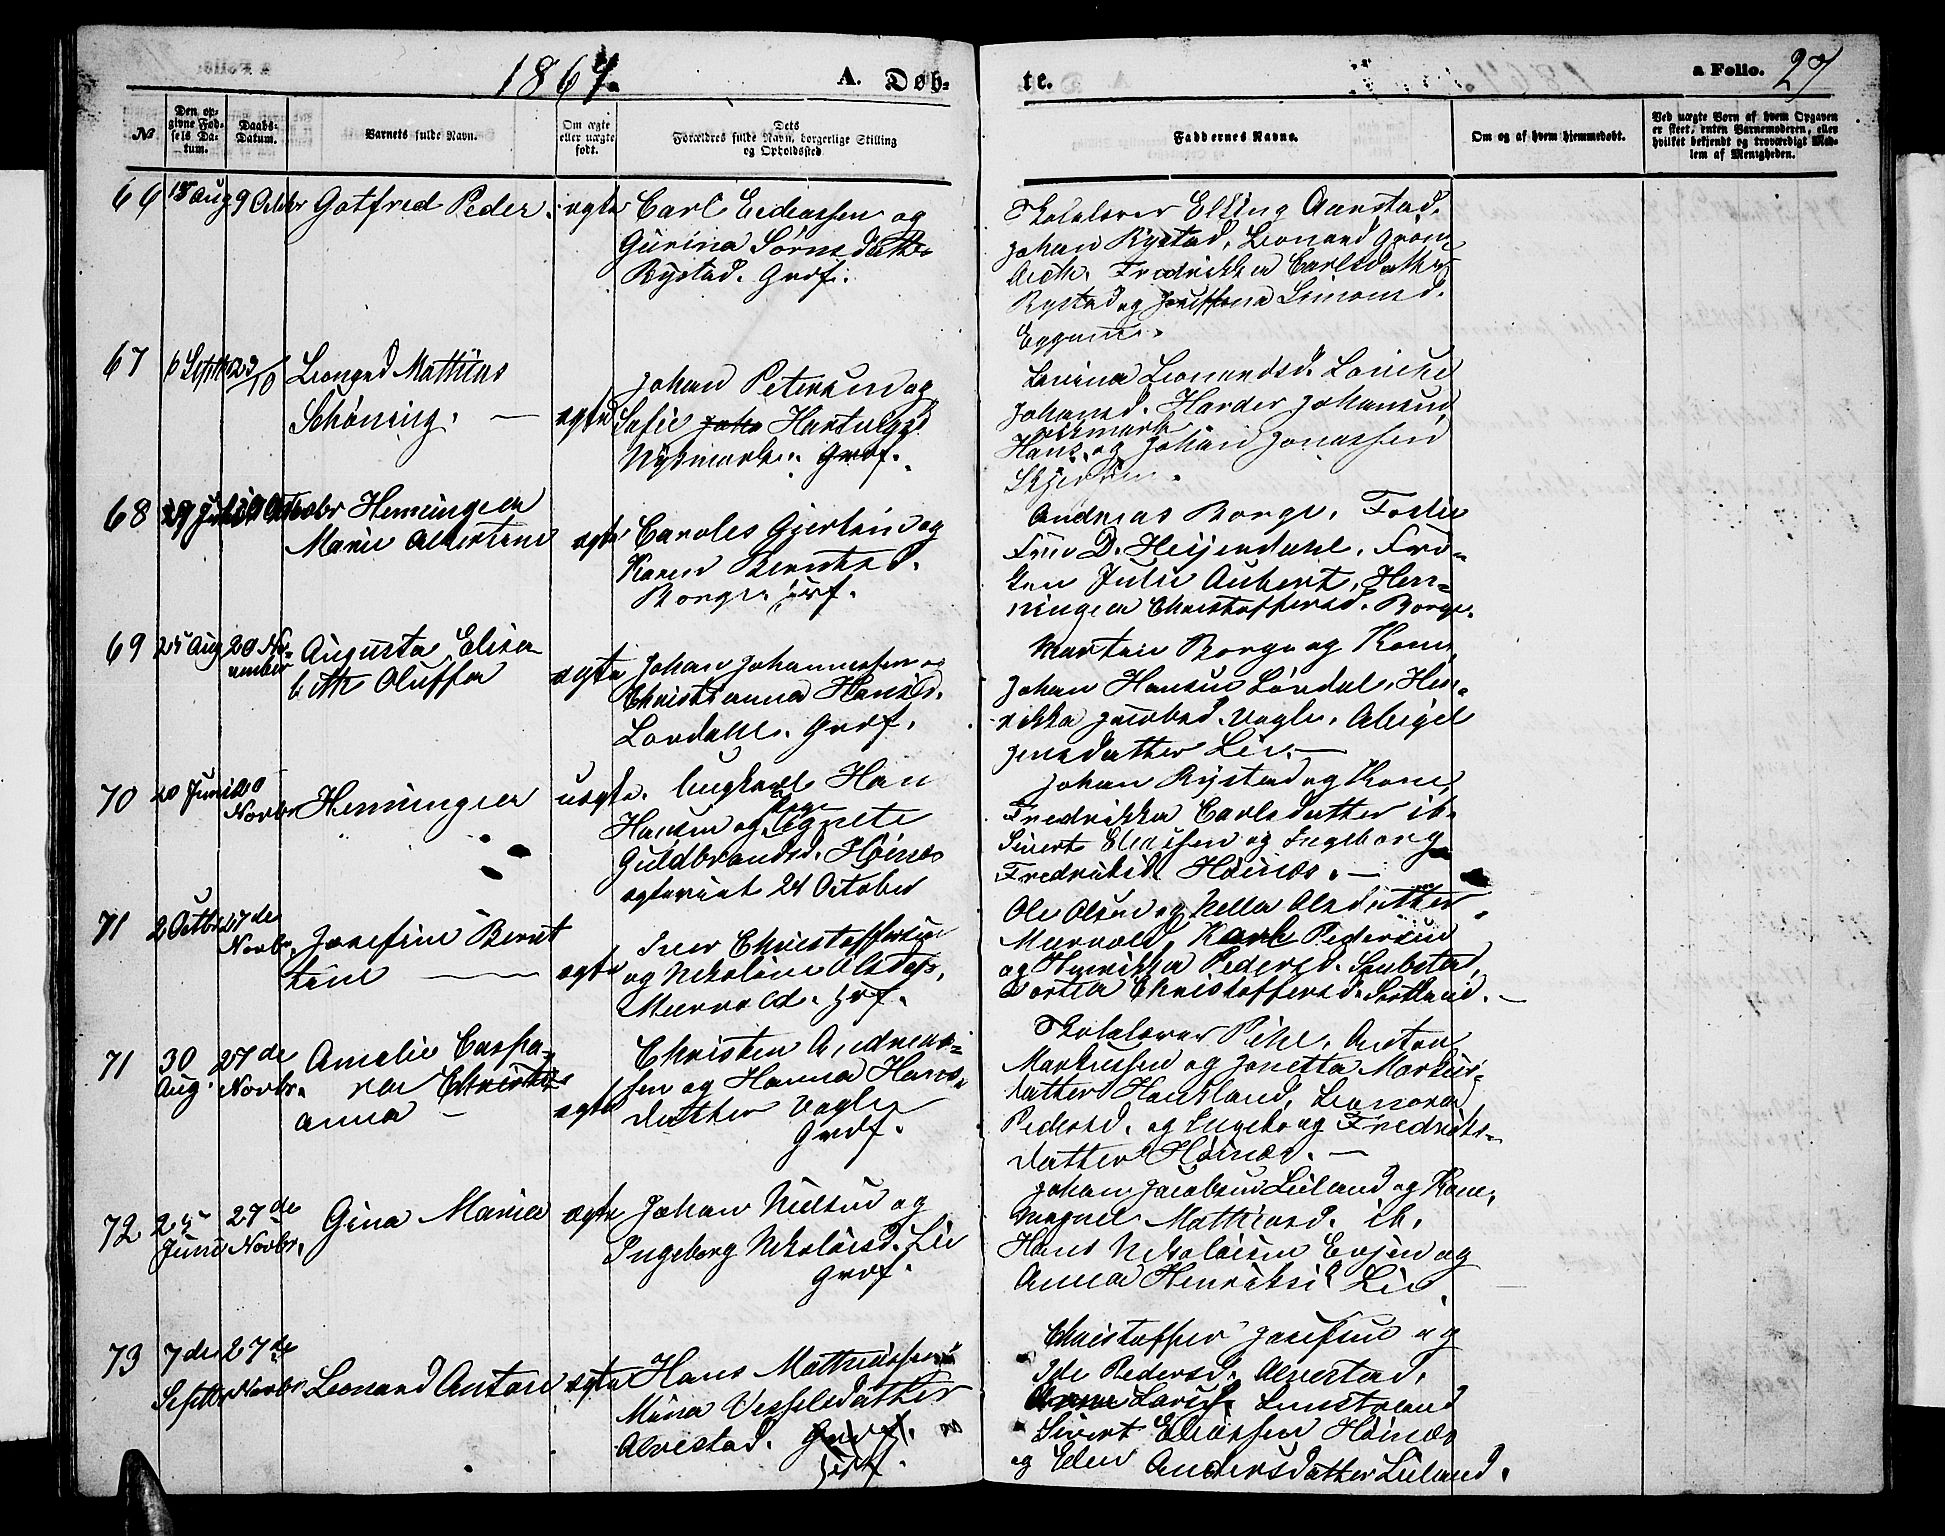 1864. A. Døb-
te. a Folio. 27
No
Den op-
givne Fød-
sels Da-
tum.
Daabs-
Datum.
Barnets fulde Navn.
Om ægte
eller uægte
født.
Dets
Forældres fulde Navn, borgerlige Stilling
og Opholdssted.
Faddernes Navne.
Om og af hvem hjemmedøbt.
Ved uægte Børn af hvem Opgaven
er skeet, enten Barnemoderen, eller
hvilket bekjendt og troværdigt Med-
lem af Menigheden.
66 18 Aug 9 Octbr Gotfred Peder. ægte
Carl Endressen og
Gurina Sørensdatter
Rystad. Grdf.
Skolelærer Elling Aanstad,
Johan Rystad, Leonard Grøn-
Fredrikka Carlsdatter
Rystad og Simonsd.
Eggum.
67 6 Septbr 23/10 Leonard Mathias
Schøning. — ægte
Johan Petersen og
Sofie Hartvigsd
Nykmark. Grdf.
Lavina Leonardsd.
Johansd. Harder Johansen
Hans og Johan Jonassen
68 29 Octbr Henningea
Marie Albertine ægte
Caroles Gjertsen og
Karen Berntsd.
Borge.
Andreas Borge,
Frue D. Heijerdahl, Frø-
ken Julie Aubert, Hen-
ningea Christoffersd. Borge.
69 25 Aug 20 No-
vember Augusta Elisa-
beth Oluffa ægte
Johan Johannessen og
Christianna Hansd.
Lordahl. Grdf.
Martin Borge og Kone,
Johan Hansen Lordal, Hen-
rikka Jacobsd. Vagle, Abigel
Jensdatter Lie. —
70 20 Juni 20
Novbr Henningea uægte.
Ungkarl Han
Hansen og Pige Agnete
Guldbrandsd. Høines
ægteviet 24 October
Johan Rystad og Kone,
Fredrikka Carlsdatter ib.
Sivert Eliassen og Ingeborg
Fredriksd. Høines. —
71 2 Octbr 27de
Novbr. Josefine Bernt
tine — ægte
Iver Christoffersen
og Nikoline Olsdatr,
Murvold.
Ole Olsen og Nella Olsdatter
Murvold, Karl Pedersen
og Henrikka Pedersd.
Dortea Christoffersd. —
71 30
Aug. 27de
Novbr. Amelie Caspa-
ra Christi-
anna — ægte
Christen Andreas-
sen og Hanna Hans-
datter Vagle
Grdf.
Skolelærer Pihl, Anton
Markussen og Jonetta Markus-
datter Haukland, Leonora
Pedersd. og Ingeborg Fredriks-
datter Høines. —
72 25
Juni 27de
Novbr. Gina Maria ægte
Johan Nielsen og
Ingeborg Nikolaisd. Lie
Grdf.
Johan Jacobsen Lieland og Kone,
Magnel Mathiasd. ib.
Hans Nikolaisen Evjen og
Anna Henriksd Lie.
73 7de
Septbr 27de
Novbr Leonard Anton ægte
Hans Mathiassen
Mina Vesselsdatter
Alvestad. Grdf.
Christoffer Josefsen og
Ide Pedersd. Alvestad,
Anne Larsd. Limstrand
Sivert Eliassen Høines
og Elen Andersdatter Lieland.